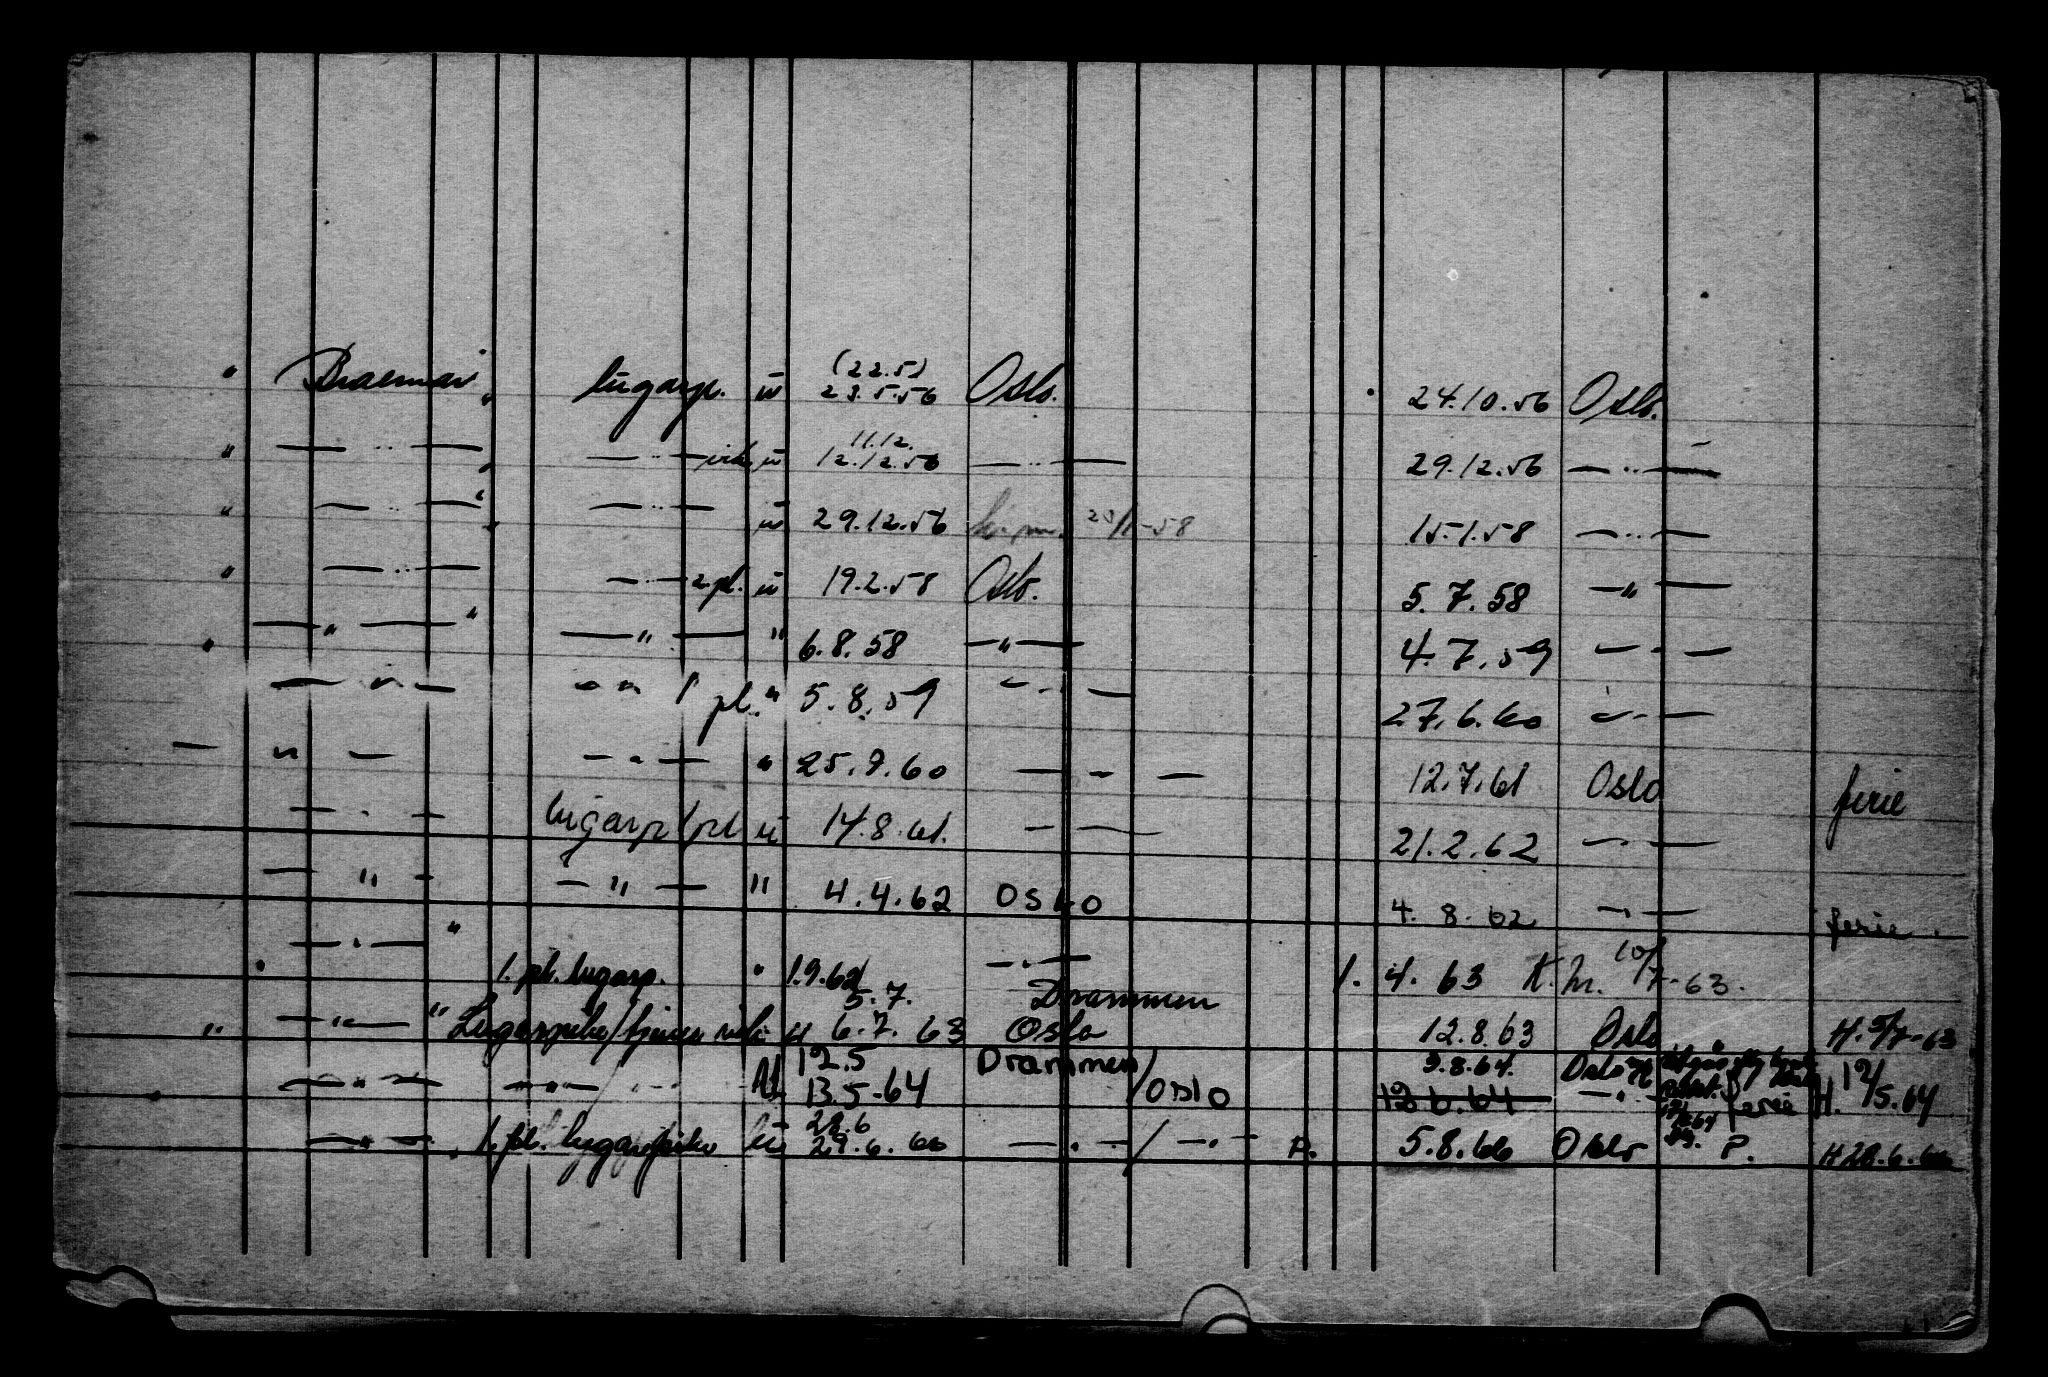 " Braemar " lugarp. ü (22.5) 23.5.56 Oslo. 24.10.56 Oslo.
" — " — — " — vik ü 11.12. 12.12.56 — " — 29.12.56 — " —
" — " — " — " — ü 29.12.56 20/1-58 15.1.58 — " —
" — " — — " — 2 pl. ü 19.2.58 Oslo. 5.7.58 — " —
" — " — " — " — " 6.8.58 — " — 4.7.59 — " —
— " — — " — 1 pl. " 5.8.59 — " — 27.6.60 — " —
— " — — " — " 25.7.60 — " — 12.7.61 Oslo ferie
— " — lugarp 1 pl ü 14.8.61. — " — 21.2.62 — " —
— " — — " — " 4.4.62 Oslo 4.8.62 — " — ferie.
— " — " 1. pl. lugarp. " 1.9.62 — " — 1. 4. 63 10/7-63.
" — " — " Lugarpike/ " 5.7. 6.7.63 Drammen Oslo 12.8.63 Oslo H. 5/7-63
— " — — " — 12.5 13.5-64 Drammen/Oslo 9.8.64. Oslo — " — ferie H. 12/5.64
— " — 1. pl. lugarpike ü 28.6 29.6.66 — " — / — " — P. 5.8.66 Oslo P. H 28.6.66